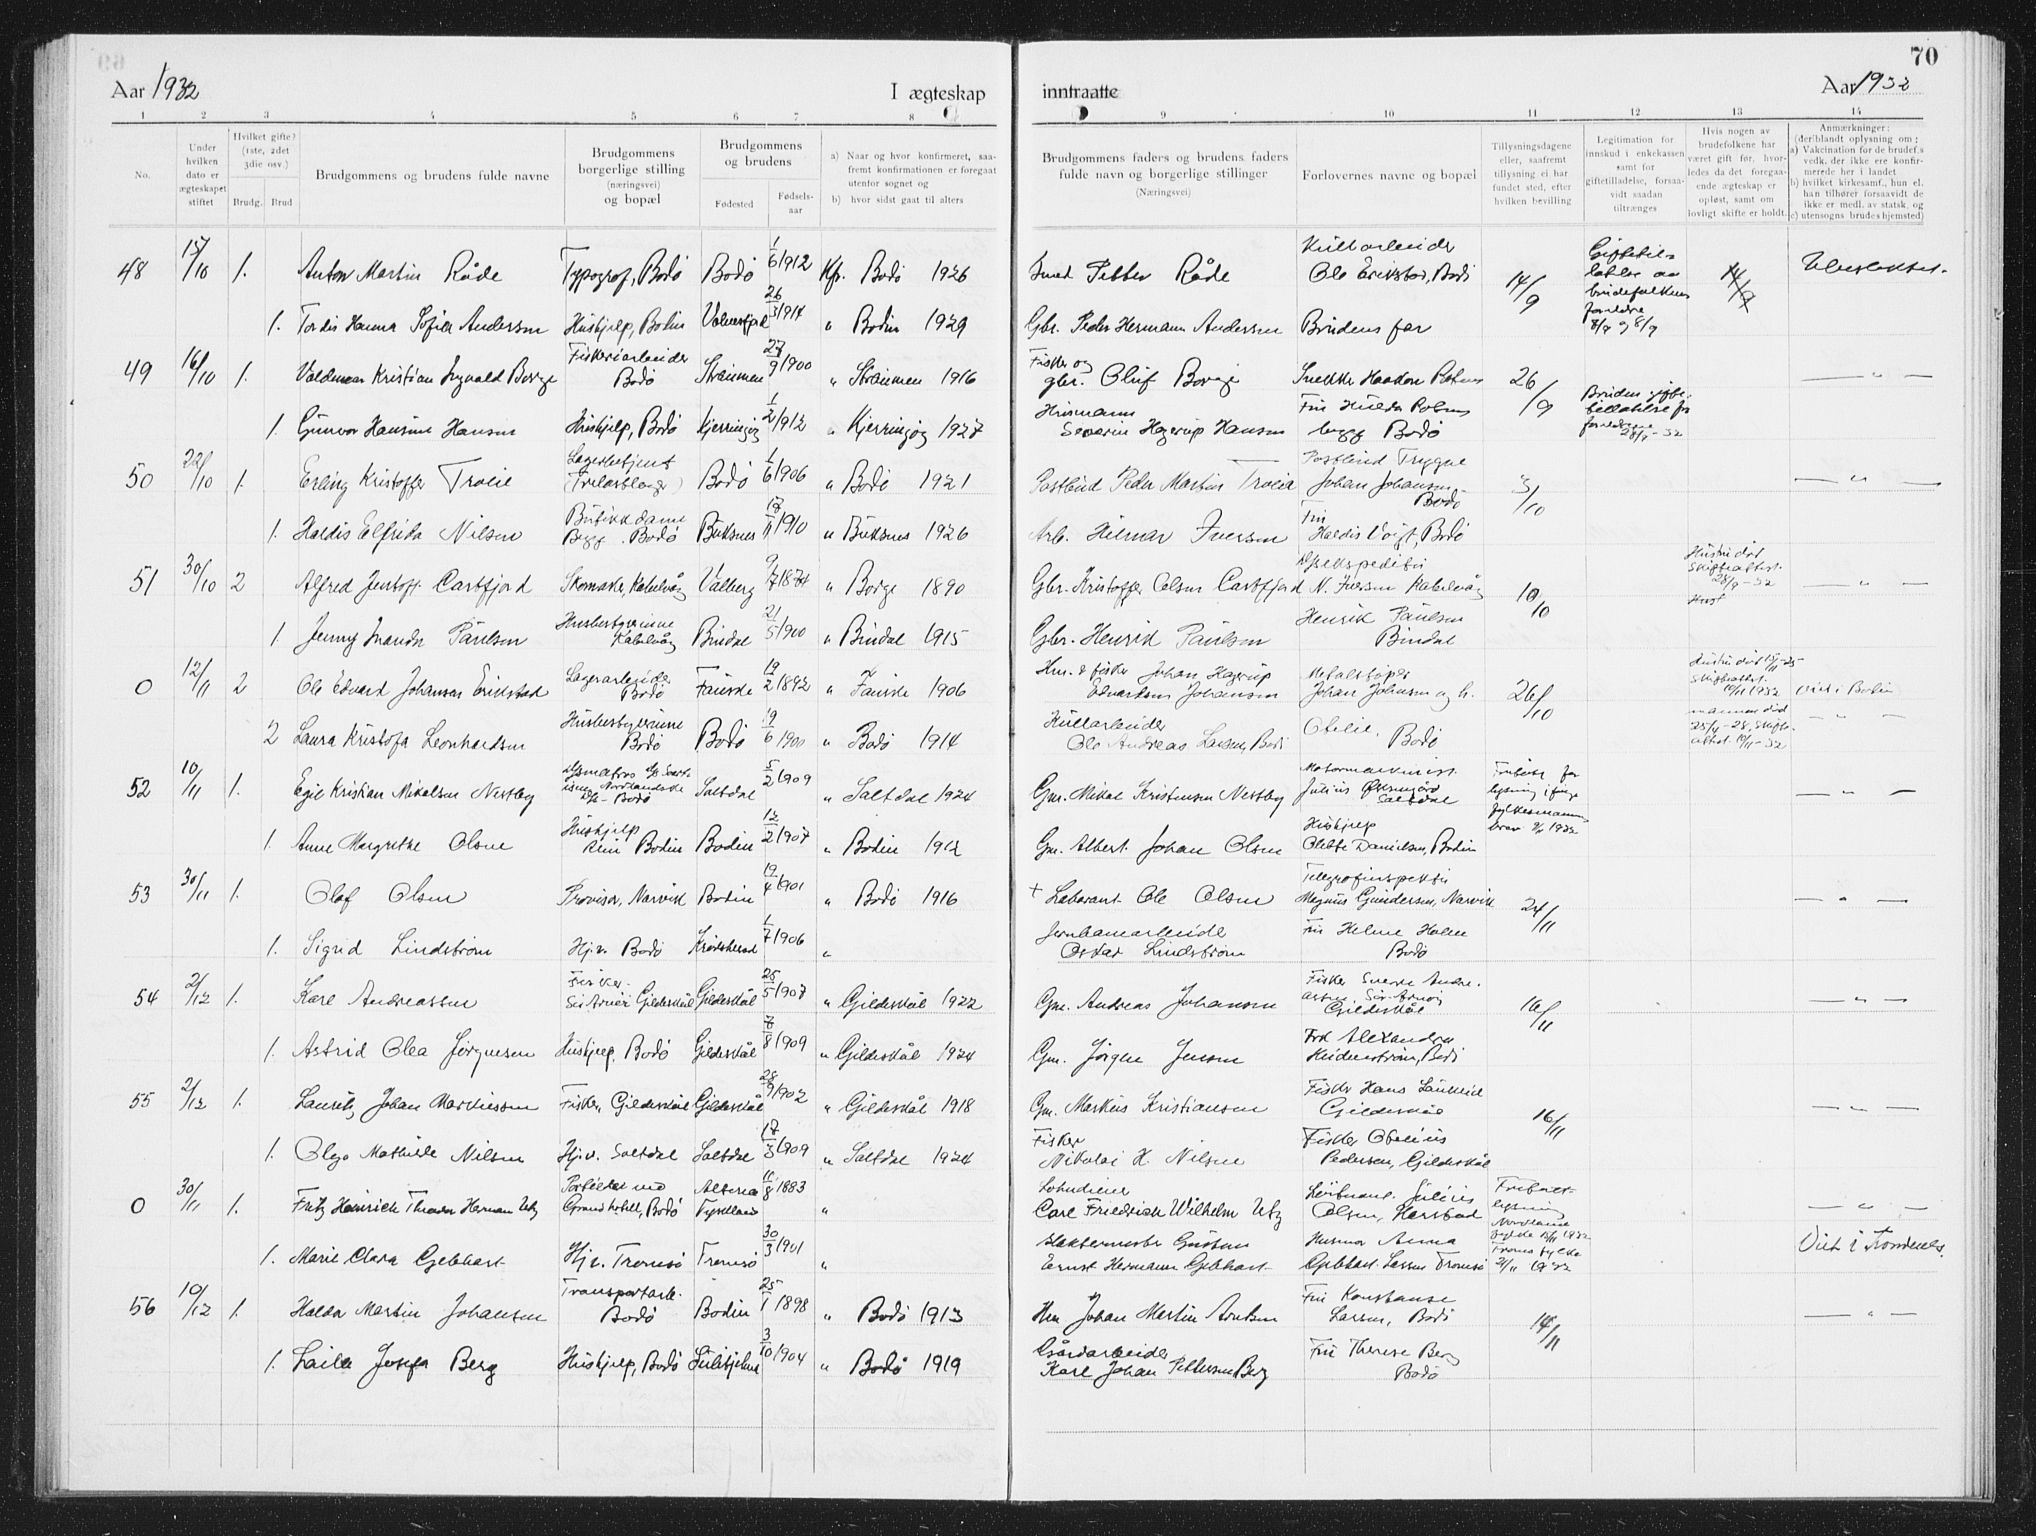 70
Aar 1932 I ægteskap inntraatte Aar 1932
1 2 3 4 5 6 7 8 9 10 11 12 13 14
No.
Under hvilken dato er ægteskapet stiftet
Hvilket gifte? (1ste, 2det 3die osv.)
Brudg. Brud
Brudgommens og brudens fulde navne
Brudgommens borgerlige stilling (næringsvei) og bopæl
Brudgommens og brudens
Fødested Fødsels-aar
a) Naar og hvor konfirmeret, saafremt konfirmationen er foregaat utenfor sognet og
b) hvor sidst gaat til alters
Brudgommens faders og brudens faders fulde navn og borgerlige stillinger (Næringsvei)
Forlovernes navne og bopæl
Tillysningsdagene eller, saafremt tillysning ei har fundet sted, efter hvilken bevilling
Legitimation for innskud i enkekassen samt for giftetilladelse, forsaavidt saadan tiltrænges
Hvis nogen av brudefolkene har været gift før, hvorledes da det foregaaende ægteskap er opløst, samt om lovligt skifte er holdt.
Anmærkninger: (deriblandt oplysning om;
a) Vakcination for de brudef.s vedk. der ikke ere konfirmerede her i landet
b) hvilket kirkesamf., hun el. han tilhører forsaavidt de ikke er medl. av statsk. og
c) utensogns brudes hjemsted)
48 15/10 1. Anton Martin Råde Typograf, Bodø Bodø 1/6 1912 Kfr. Bodø 1926 Smed Petter Råde Ole Erikstad, Bodø 14/9 Giftetil- brudefolkenes foreldre 8/9 og 8/9 14/9
1. Tordis Hanna Sofie Andersen Hushjelp, Bodin 26/3 1914 " Bodin 1929 Gbr. Peder Hermann Andersen Brudens far
49 16/10 1. Valdemar Kristian Ingvald Borge Fiskeriarbeider Bodø Straumen 27/9 1900 " Straumen 1916 Fisker og gbr. Oluf Borge Snedker Haakon 26/9 — " —
1. Gunvor Hansine Hansen Hushjelp, Bodø Kjerringøy 1/2 1912 " Kjerringøy 1927 Husmann Severin Hagerup Hansen Fru Hulda bygg Bodø Brudens gifte- tilladelse fr foreldrene 28/9-32
50 22/10 1. Erling Kristoffer Troeie Lagerbetjent Bodø 1/6 1906 " Bodø 1921 Postbud Peder Martin Troeia Postbud Trygve Johan Johansen Bodø 3/10 — " —
1. Haldis Elfrida Nilsen Butikkdame Bygg. Bodø Buksnes 17/11 1910 " Buksnes 1926 Arb. Hilmar Iversen Fru Haldis Voigt, Bodø
51 30/10 2 Alfred Jentoft Castfjord Skomaker, Kabelvåg Valberg 9/7 1874 " Borge 1890 Gbr. Kristoffer Olsen Castfjord N. Iversen Kabelvåg 10/10 Hustru død Skifteattest. 28/9-32 — " —
1. Jenny Paulsen Husbestyrerinne Kabelvåg Bindal 21/5 1900 " Bindal 1915 Gbr. Henrik Paulsen Henrik Paulsen Bindal
0 12/11 2 Ole Edvard Johansen Erikstad Lagerarbeider Bodø Fauske 19/2 1892 " Fauske 1906 Hm. & fisker Johan Hagerup Edvardsen Johansen Metalstøper Johan Johnsen og h. 26/10 Viet i Bodin
2 Laura Kristofa Leonhardsen Husbestyrerinne Bodø Bodø 19/6 1900 " Bodø 1914 Kullarbeider Ole Andreas Larsen, Bodø Otelie, Bodø mannen død 25/4-28, Skifte- attest 10/11-32 — " —
52 10/11 1. Egil Kristian Mikalsen Nestby Saltdal 5/2 1909 " Saltdal 1924 Gm. Mikal Kristensen Nestby Julius Saltdal lysning Fylkesmannens brev 1932 — " —
1. Anne Margrethe Olsen Hushjelp Bodin Bodin 12/2 1907 " Bodin 1912 Gm. Albert Johan Olsen Hushjelp Olette Danielsen, Bodin
53 30/11 1. Olaf Olsen Provisor, Narvik Bodin 19/4 1901 " Bodø 1916 + Laborant Ole Olsen Telegrafinspektør Magnus Gundersen, Narvik 24/11 — " —
1. Sigrid Lindstrøm Hjv. Bodø Krødsherad 1/7 1906 " Jernbanearbeider Oskar Lindstrøm Fru Helene Holen Bodø
54 2/12 1. Karl Andreassen Fisker Sør Arnøy Gildeskål Gildeskål 25/5 1907 " Gildeskål 1922 Gm. Andreas Johansen Fisker Sverre Andreassen, Sør-Arnøy Gildeskål 16/11 — " —
1. Astrid Olea Jørgensen Hushjelp, Bodø Gildeskål 7/8 1909 " Gildeskål 1924 Gm. Jørgen Jensen Frk Alexandra Heidenstrøm, Bodø
55 2/12 1. Lauritz Johan Markussen Fisker, Gildeskål Gildeskål 28/9 1902 " Gildeskål 1918 Gm. Markus Kristiansen Fisker Hans Gildeskål 16/11 — " —
1. Olga Mathilde Nilsen Hjv. Saltdal Saltdal 17/3 1909 " Saltdal 1924 Fisker Nikolai H. Nilsen Fisker Otelius Pedersen, Gildeskål
0 30/11 1. Fritz Heinrich Theodor Herman Utz Portier ved Grand hotell, Bodø Altona Tyskland 11/8 1883 " Carl Friedrich Wilhelm Utz Løitnant Julius Olsen, Harstad lysning Nordland fylke 1932 — " —
1. Marie Clara Gebhart Hjv. Tromsø Tromsø 30/3 1901 " Slaktermester Gustav Ernst Hermann Gebhart Husmor Anna Gebhart Larsen Tromsø Troms fylke 21/11 1932 Viet i Trondenes.
56 10/12 1. Haldor Martin Johansen Transportarb. Bodø Bodin 25/1 1898 " Bodø 1913 Hm Johan Martin Arntsen Fru Konstanse Larsen, Bodø 14/11 — " —
1. Laila Josefa Berg Hushjelp, Bodø Sulitjelma 3/10 1904 " Bodø 1919 Gårdarbeider Karl Johan Pettersen Berg Fru Therese Berg Bodø